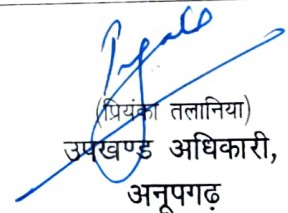 (प्रियंका तलानिया)
उपखण्ड अधिकारी,
अनूपगढ़